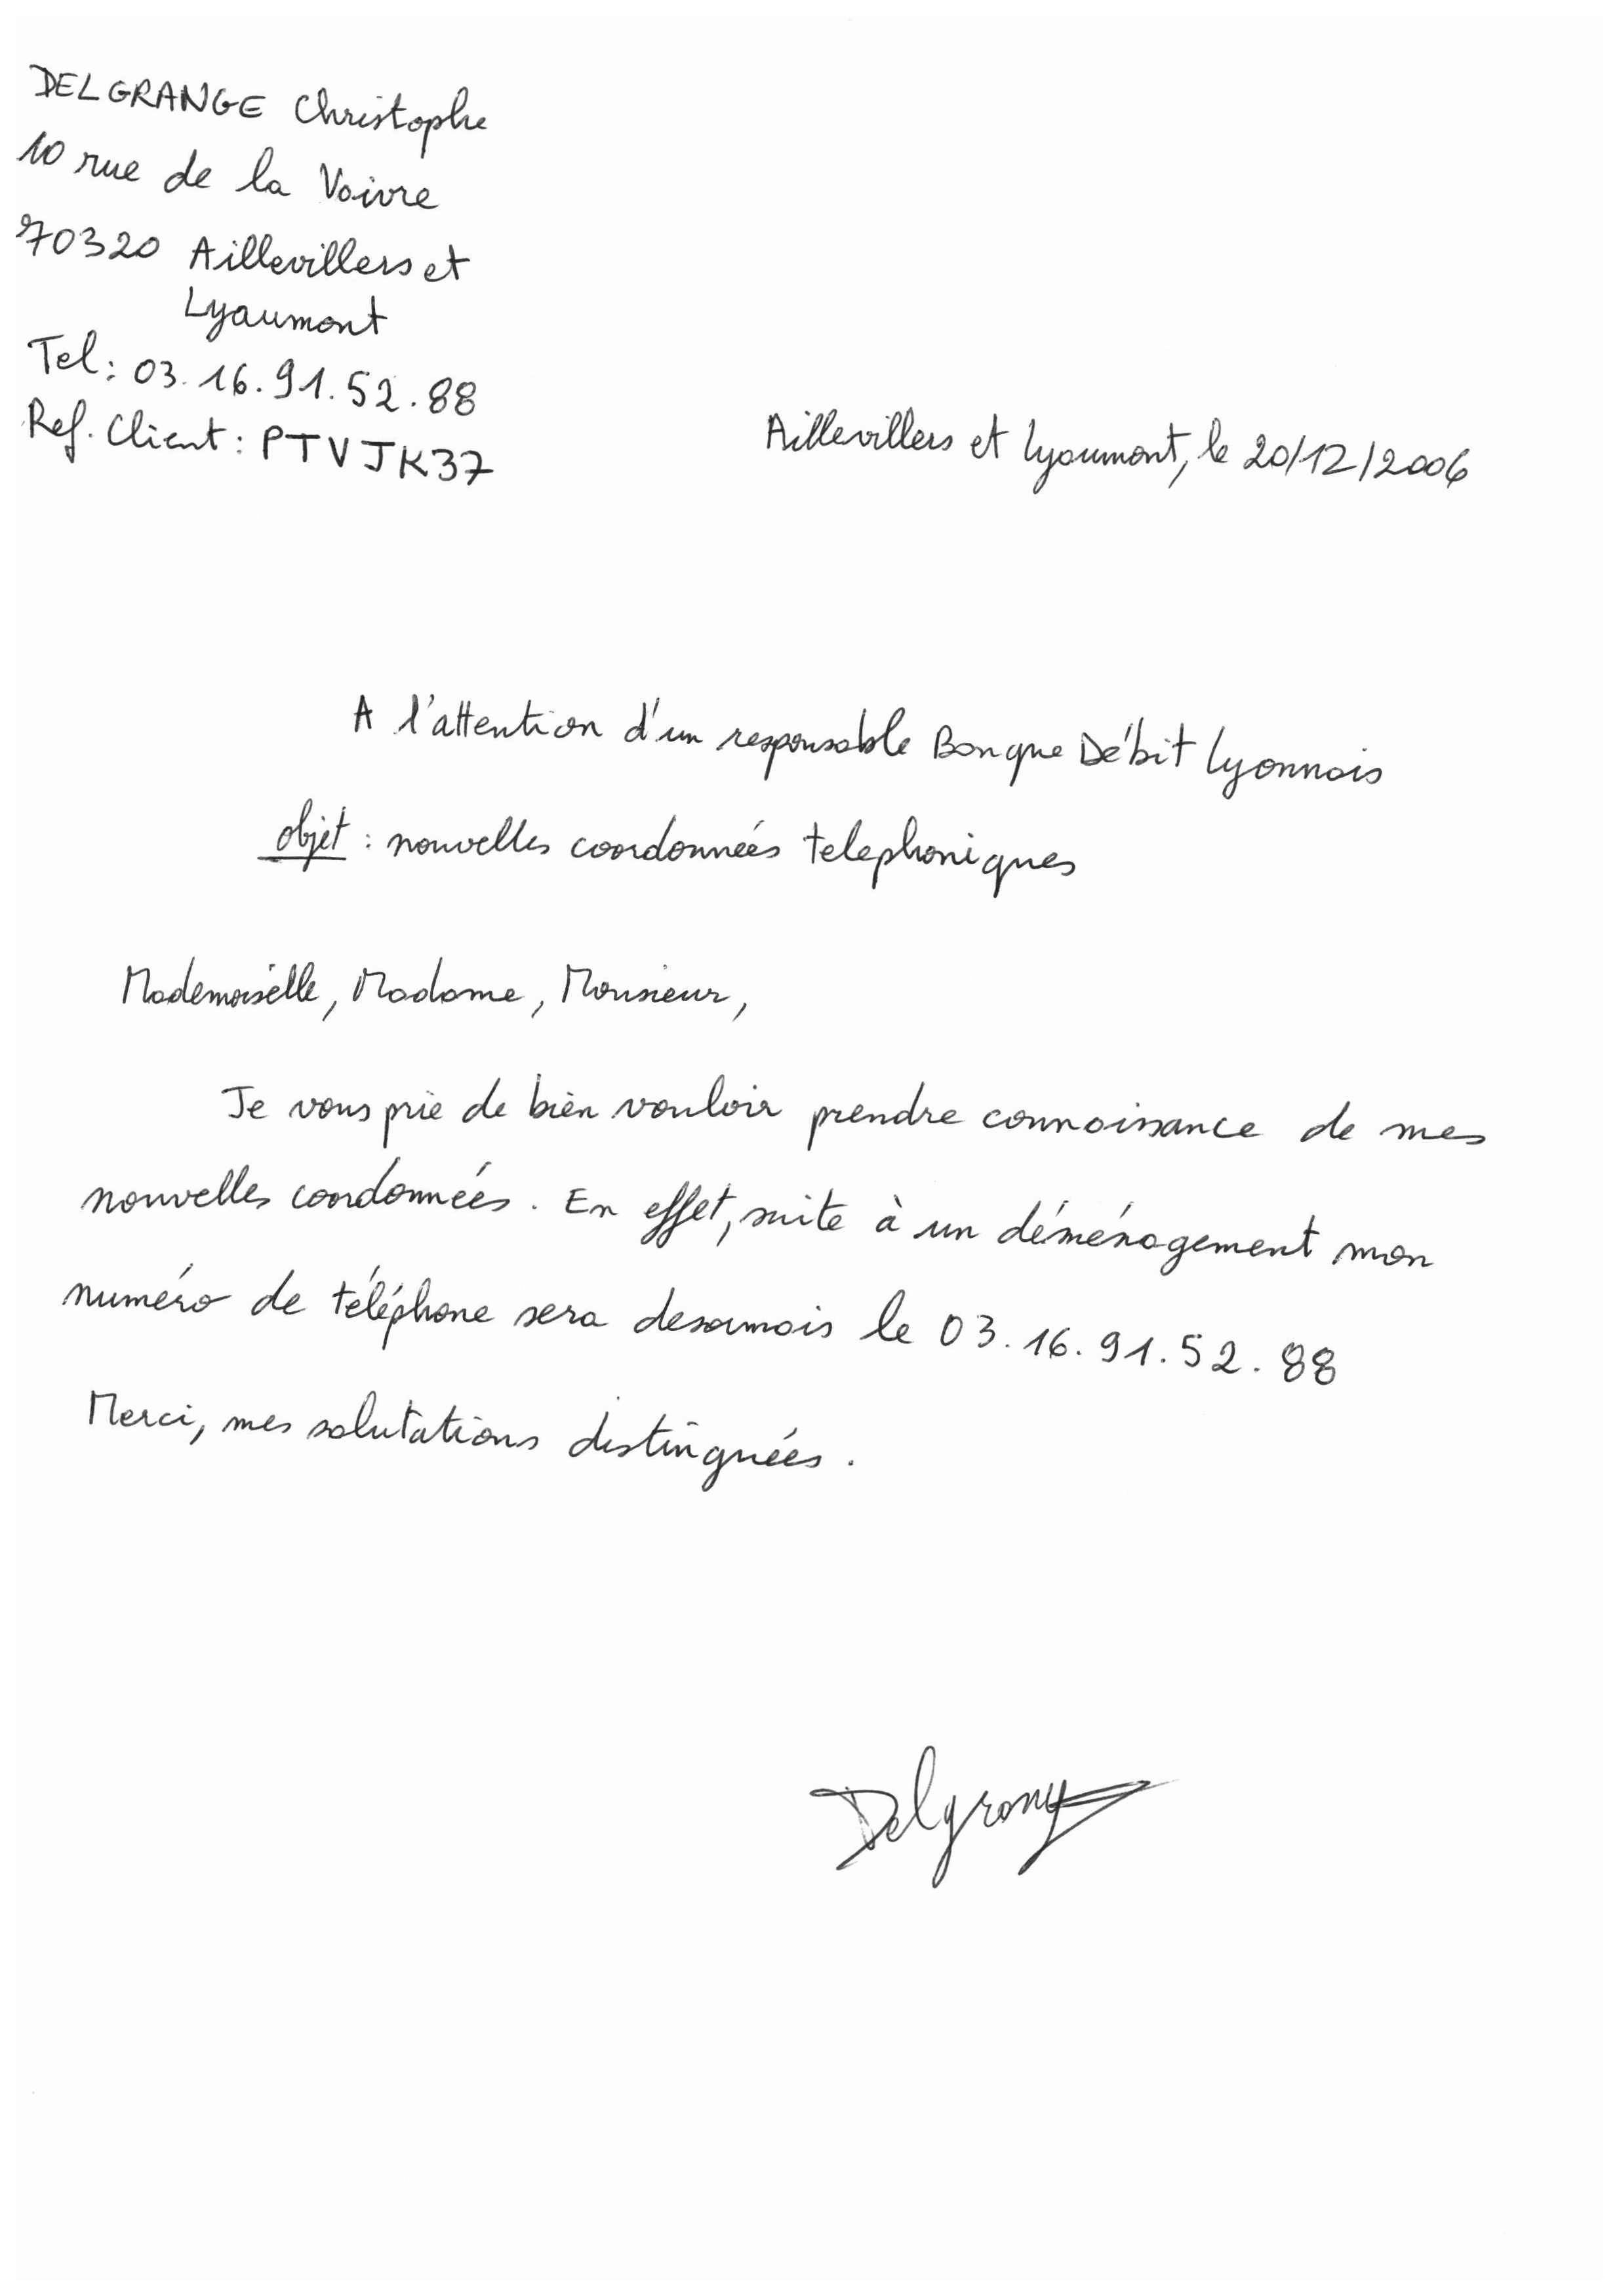 DELGRANGE Christophe
10 rue de la Voivre
70320 Aillevillers et
Lyaumont
Tel : 03.16.91.52.88
Ref. Client : PTVJK37
Aillevillers et Lyaumont, le 20/12/2006
A l'attention d'un responsable Banque Débit Lyonnais
objet : nouvelles coordonnées telephoniques
Mademoiselle, Madame, Monsieur,
Je vous prie de bien vouloir prendre connaissance de mes
nouvelles coordonnées. En effet, suite à un déménagement mon
numéro de téléphone sera desormais le 03.16.91.52.88
Merci, mes salutations distinguées.
Delgrange